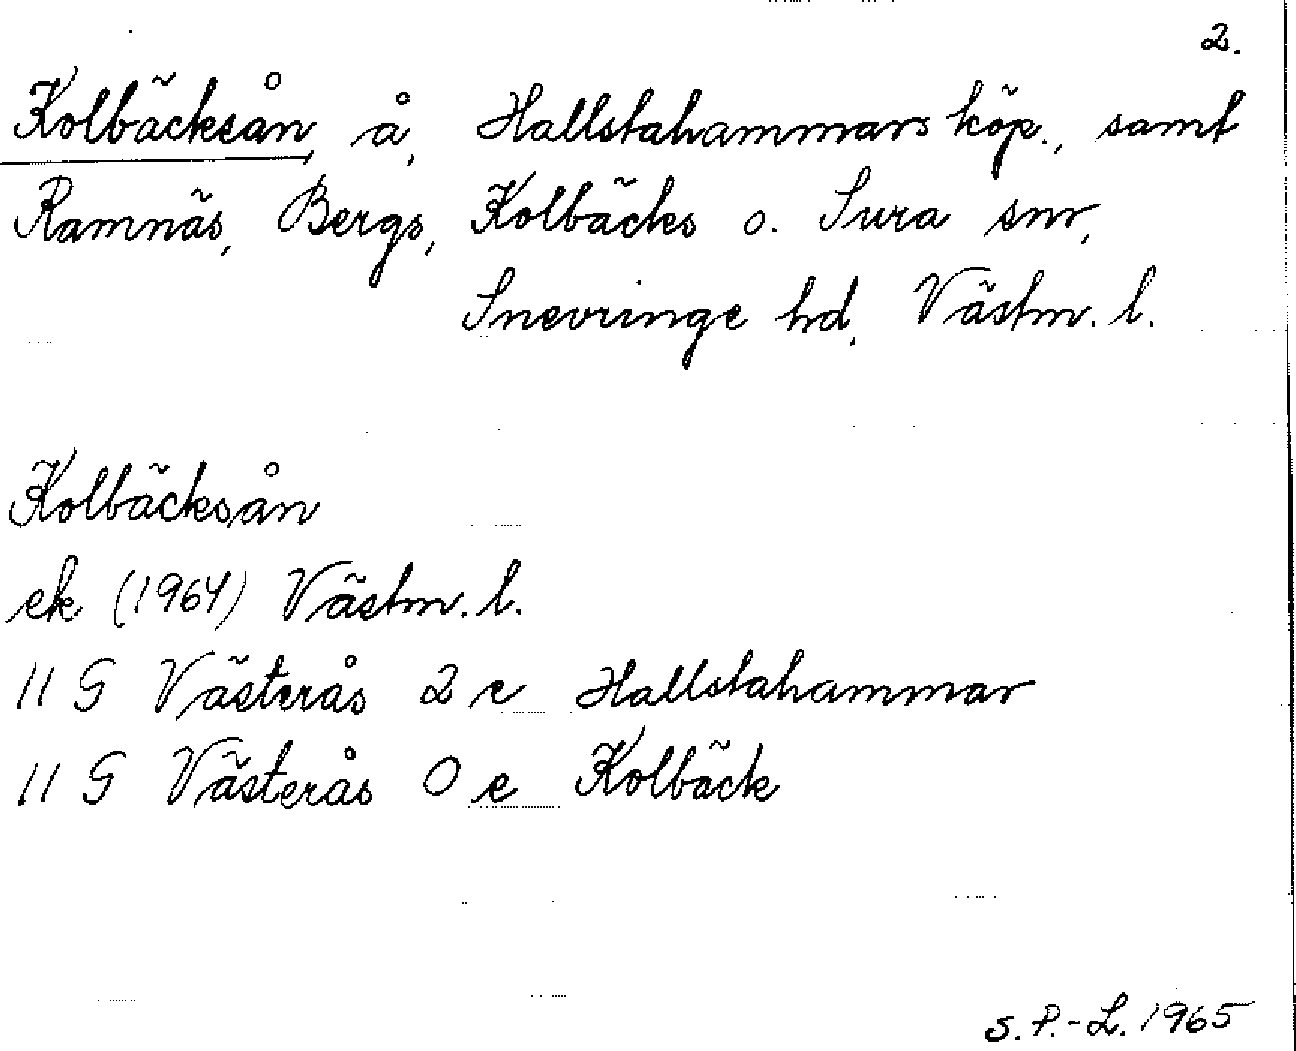 2.
Kolbäcksån, å, Hallstahammars köp., samt
Ramnäs, Bergs, Kolbäcks o. Sura snr,
Snevringe hd, Västm. l.
Kolbäcksån
ek (1964) Västm. l.
11 G Västerås 2 e Hallstahammar
11 G Västerås 0 e Kolbäck
S.P.-L. 1965